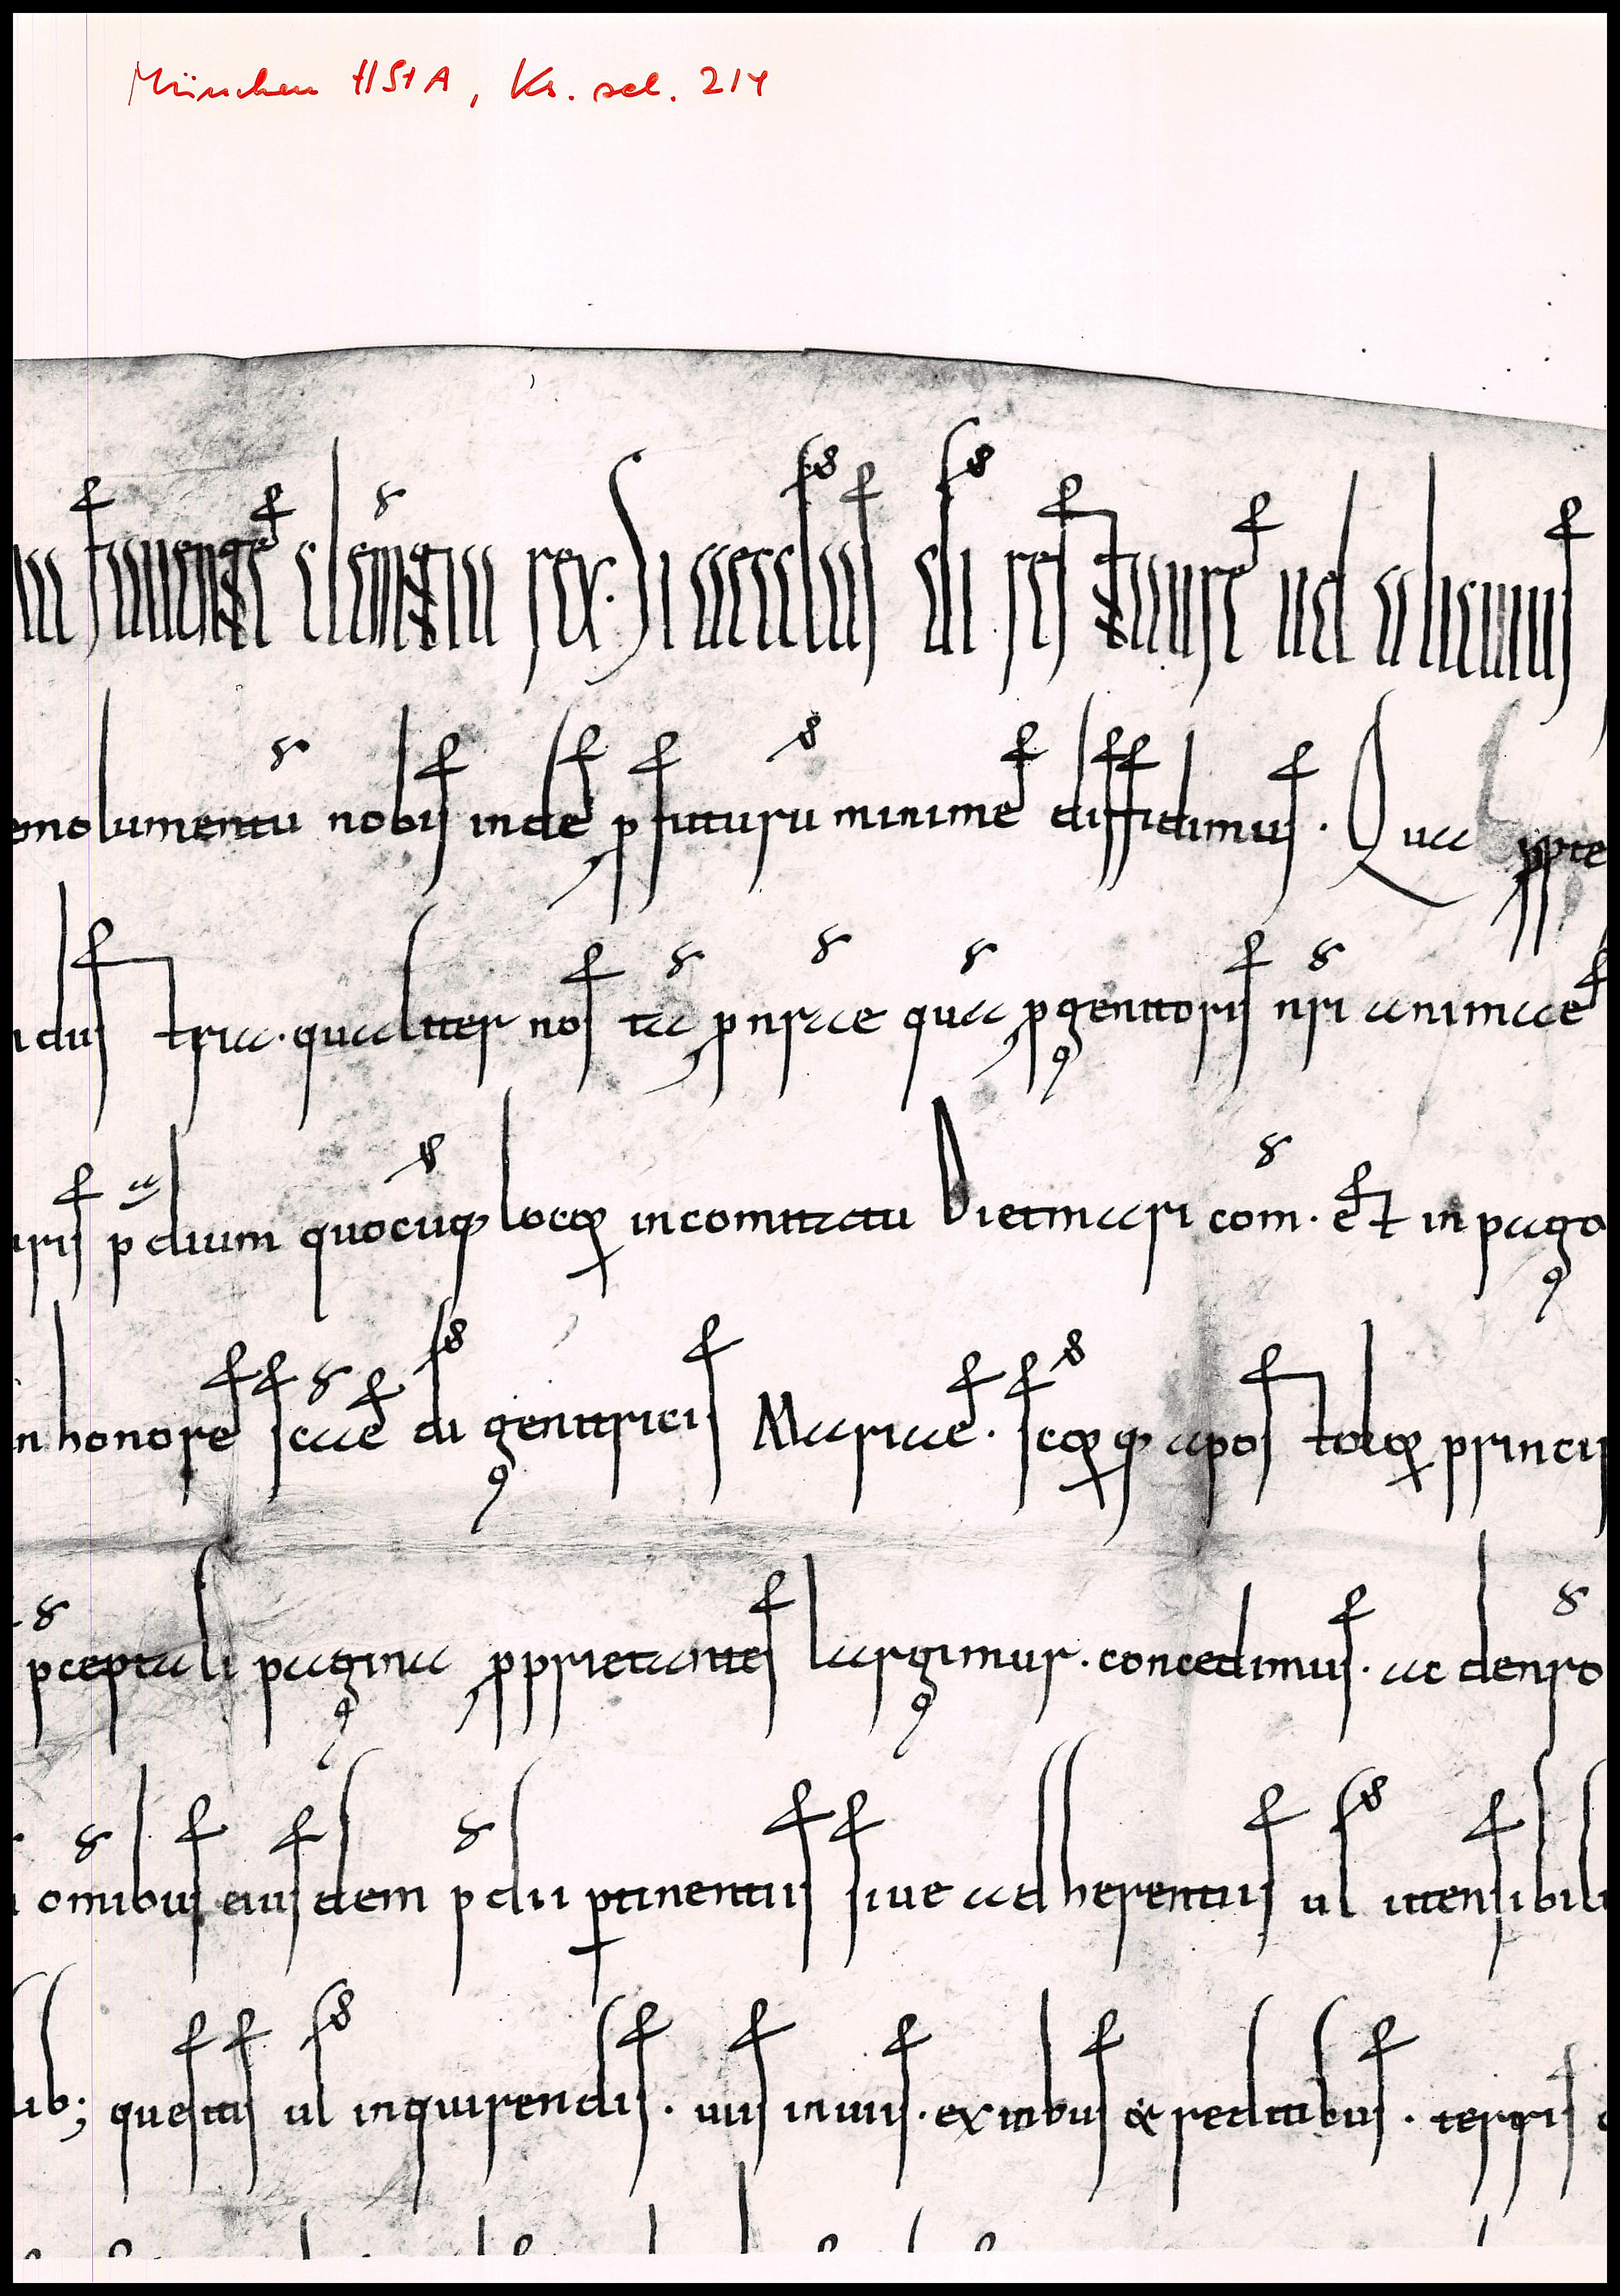 München HStA, Ks. sel. 214
fauente clemtia rex. Si aecclas di restaurare uel alicuius
emolumentu nobis inde pfuturu minime diffidimus. Qua ppte
tria. qualiter nos ta p nra e qua pgenitoris nri animae
p dium quocuq locoq in comitatu Dietmari com. et in pago
in honore scae di genitricis Mariae. scoq q apostoloq princi
pceptali pagina pprietantes largimur. concedimus. ac denro
omibus eiusdem p dii ptinentiis siue adherentiis ul utensibili
ib; quesitis ul inquirendis. uiis inuiis. exitibus & reditibus. terris